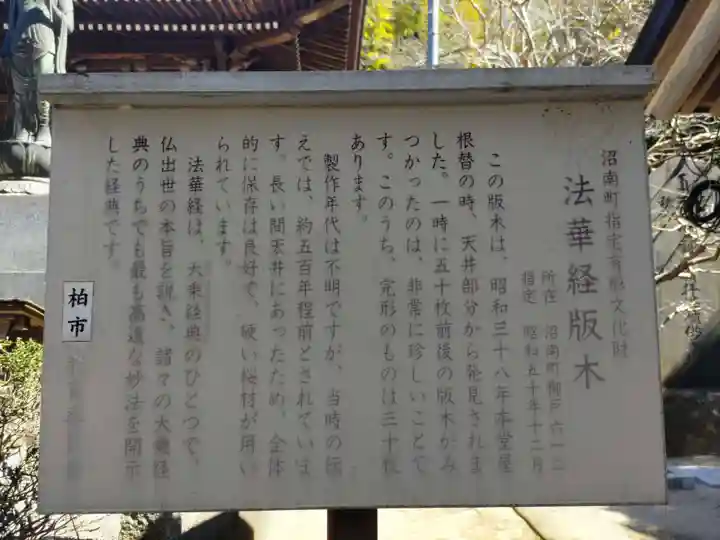 沼南町指定有形文化財
法華経版木
所在 沼南町鷲野谷
指定 昭和五十年十二月
この版木は、昭和三十八年本堂屋
根替の時、天井部分から発見されま
した。一時に五十枚前後の版木がみ
つかったのは、非常に珍しいことで
す。このうち、完形のものは三十枚
あります。
製作年代は不明ですが、当時の伝
えでは、約五百年程前とされていま
す。長い間天井にあったため、全体
的に保存は良好で、硬い桜材が用い
られています。
法華経は、大乗経典のひとつで、
仏出世の本旨を説き、諸々の大乗経
典のうちでも最も高遠な妙法を開示
した経典です。
柏市